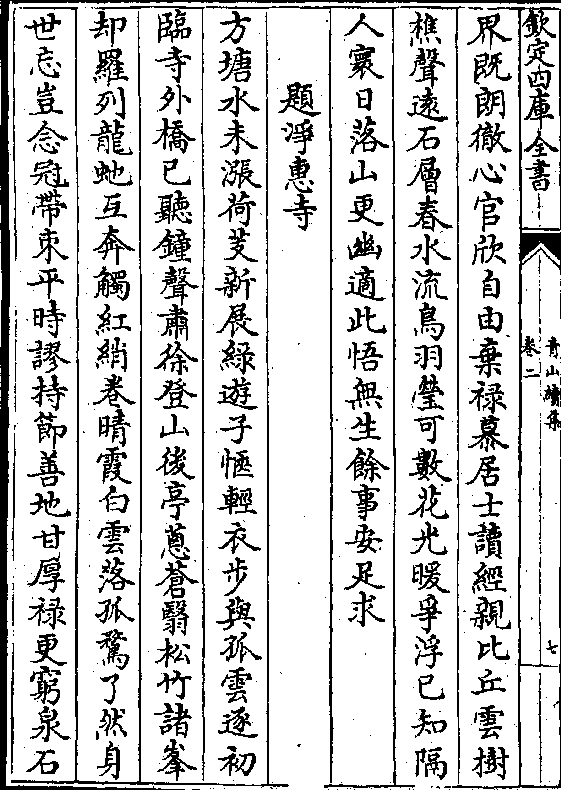 欽定四庫全書
青山續集
卷二
七
界既朗徹心官欣自由棄禄慕居士讀經親比丘雲樹
樵聲逺石層春水流鳥羽瑩可數花光暖爭浮已知隔
人寰日落山更幽適此悟無生餘事安足求
題淨惠寺
方塘水未漲荷芰新展緑遊子愜輕衣步與孤雲逐初
臨寺外橋已聽鐘聲肅徐登山後亭蔥蒼翳松竹諸峯
却羅列龍虵互奔觸紅綃巻晴霞白雲落孤鶩了然身
世忘豈念冠帶束平時謬持節善地甘厚禄更窮泉石